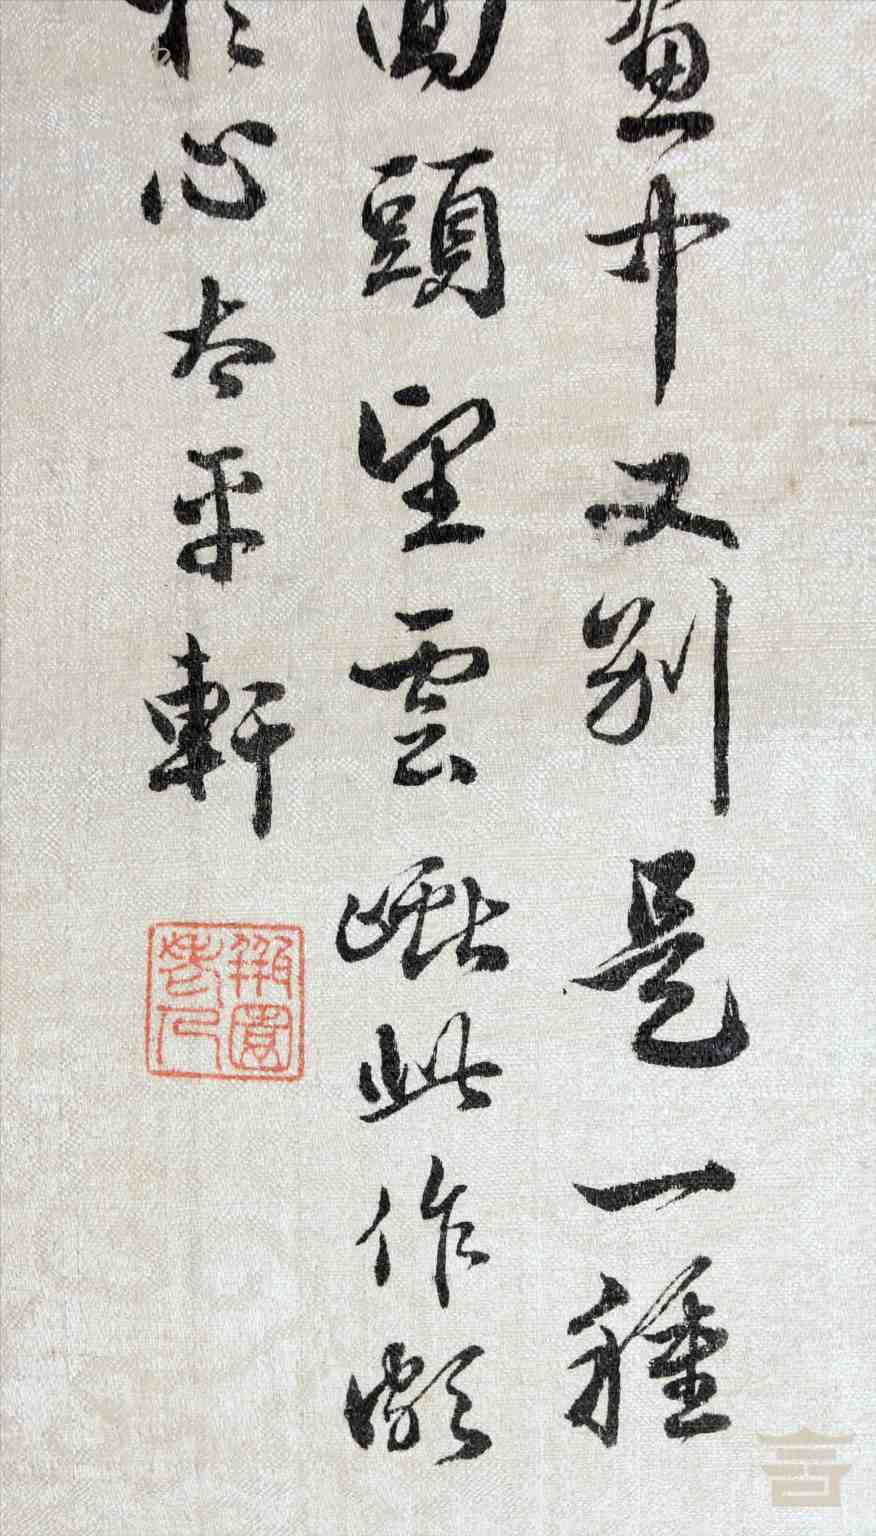 畫中又別是一種
頭望雲此作頗
於心太平軒